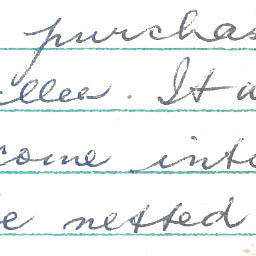 purchas
ellen. It w
come inte
e netted